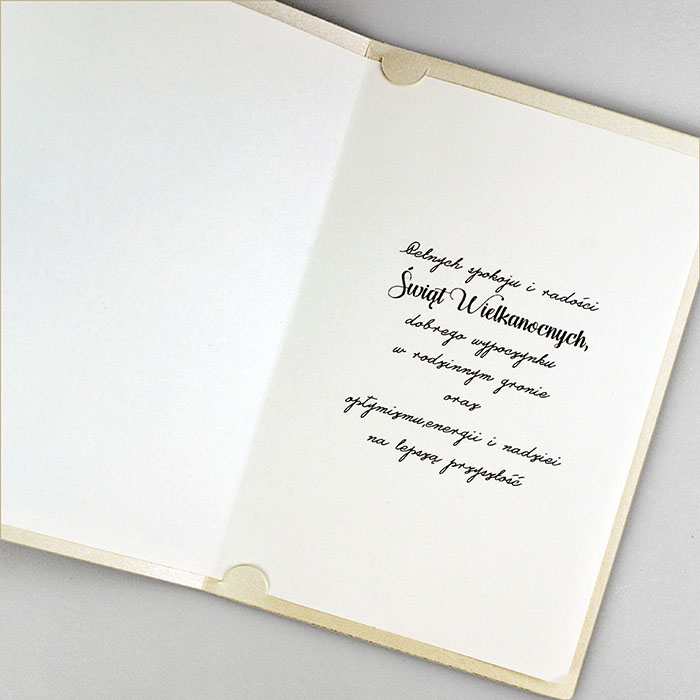 Pełnych spokoju i radości
Świąt Wielkanocnych,
dobrego wypoczynku
w rodzinnym gronie
oraz
optymizmu,energii i nadziei
na lepszą przyszłość